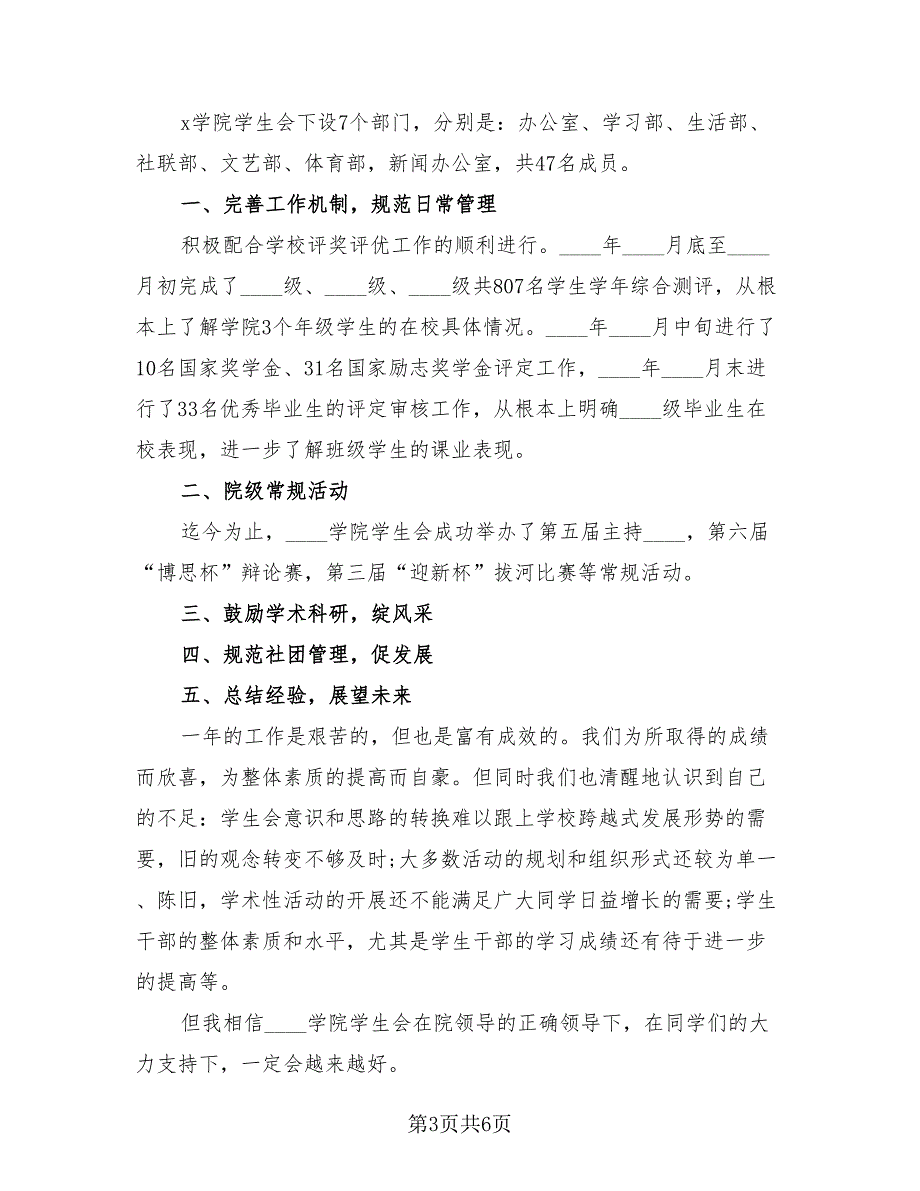 x学院学生会下设7个部门，分别是：办公室、学习部、生活部、
社联部、文艺部、体育部，新闻办公室，共47名成员。
一、完善工作机制，规范日常管理
积极配合学校评奖评优工作的顺利进行。____年____月底至____
月初完成了____级、____级、____级共807名学生学年综合测评，从根
本上了解学院3个年级学生的在校具体情况。____年____月中旬进行了
10名国家奖学金、31名国家励志奖学金评定工作，____年____月末进
行了33名优秀毕业生的评定审核工作，从根本上明确____级毕业生在
校表现，进一步了解班级学生的课业表现。
二、院级常规活动
迄今为止，____学院学生会成功举办了第五届主持____，第六届
“博思杯”辩论赛，第三届“迎新杯”拔河比赛等常规活动。
三、鼓励学术科研，绽风采
四、规范社团管理，促发展
五、总结经验，展望未来
一年的工作是艰苦的，但也是富有成效的。我们为所取得的成绩
而欣喜，为整体素质的提高而自豪。但同时我们也清醒地认识到自己
的不足：学生会意识和思路的转换难以跟上学校跨越式发展形势的需
要，旧的观念转变不够及时;大多数活动的规划和组织形式还较为单一
、陈旧，学术性活动的开展还不能满足广大同学日益增长的需要;学生
干部的整体素质和水平，尤其是学生干部的学习成绩还有待于进一步
的提高等。
但我相信____学院学生会在院领导的正确领导下，在同学们的大
力支持下，一定会越来越好。
第3页共6页